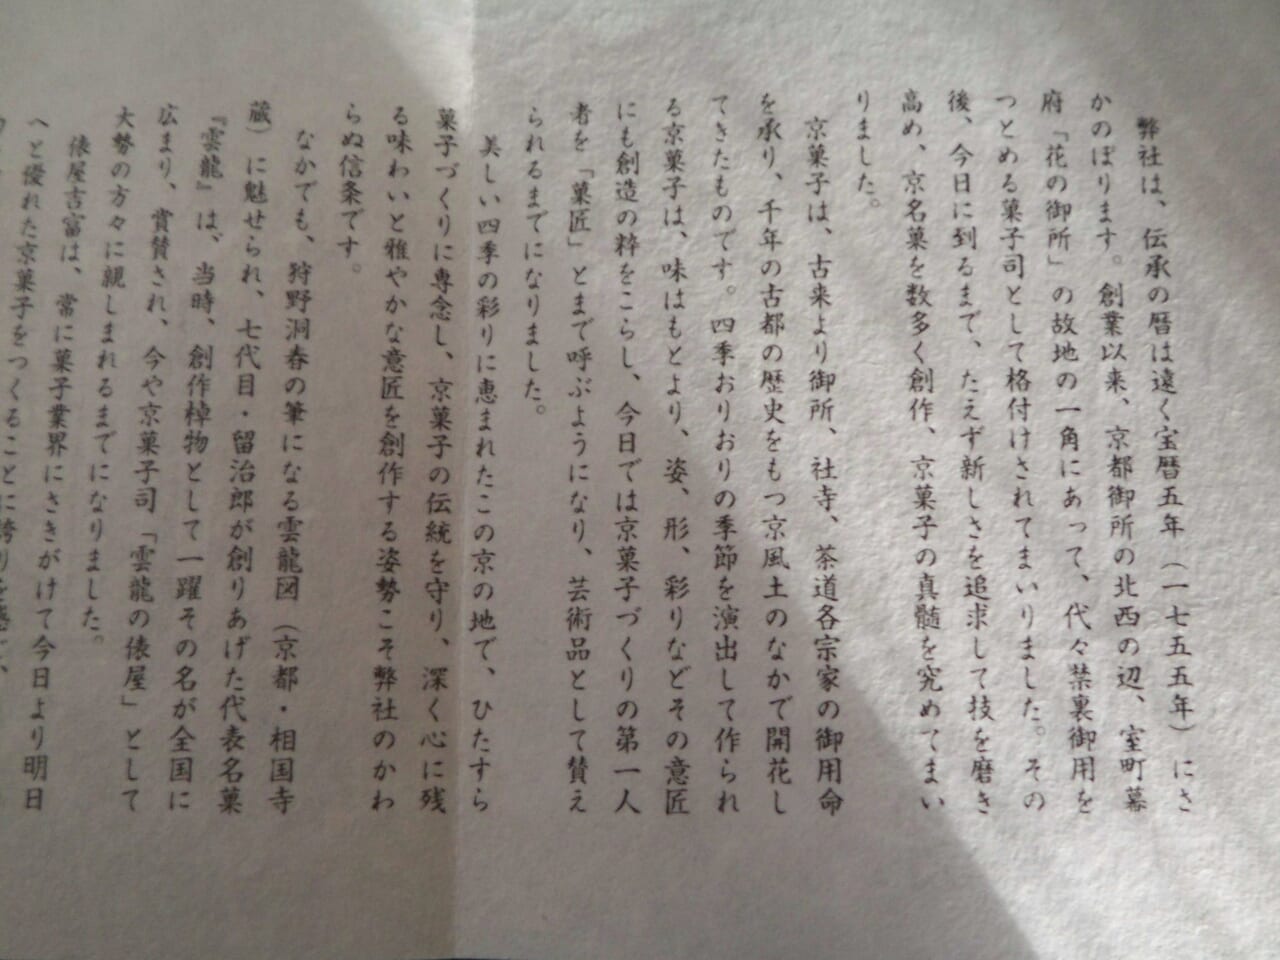 弊社は、伝承の暦は遠く宝暦五年（一七五五年）にさ
かのぼります。創業以来、京都御所の北西の辺、室町幕
府「花の御所」の故地の一角にあって、代々禁裏御用を
つとめる菓子司として格付けされてまいりました。その
後、今日に到るまで、たえず新しさを追求して技を磨き
高め、京名菓を数多く創作、京菓子の真髄を究めてまい
りました。
京菓子は、古来より御所、社寺、茶道各宗家の御用命
を承り、千年の古都の歴史をもつ京風土のなかで開花し
てきたものです。四季おりおりの季節を演出して作られ
る京菓子は、味はもとより、姿、形、彩りなどその意匠
にも創造の粋をこらし、今日では京菓子づくりの第一人
者を「菓匠」とまで呼ぶようになり、芸術品として賛え
られるまでになりました。
美しい四季の彩りに恵まれたこの京の地で、ひたすら
菓子づくりに専念し、京菓子の伝統を守り、深く心に残
る味わいと雅やかな意匠を創作する姿勢こそ弊社のかわ
らぬ信条です。
なかでも、狩野洞春の筆になる雲龍図（京都・相国寺
蔵）に魅せられ、七代目・留治郎が創りあげた代表名菓
『雲龍』は、当時、創作棹物として一躍その名が全国に
広まり、賞賛され、今や京菓子司「雲龍の俵屋」として
大勢の方々に親しまれるまでになりました。
俵屋吉富は、常に菓子業界にさきがけて今日より明日
へと優れた京菓子をつくることに誇りを感じ、